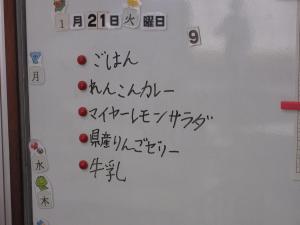 1月21日火曜日
9
ごはん
れんこんカレー
マイヤーレモンサラダ
県産りんごゼリー
牛乳
月
水
木